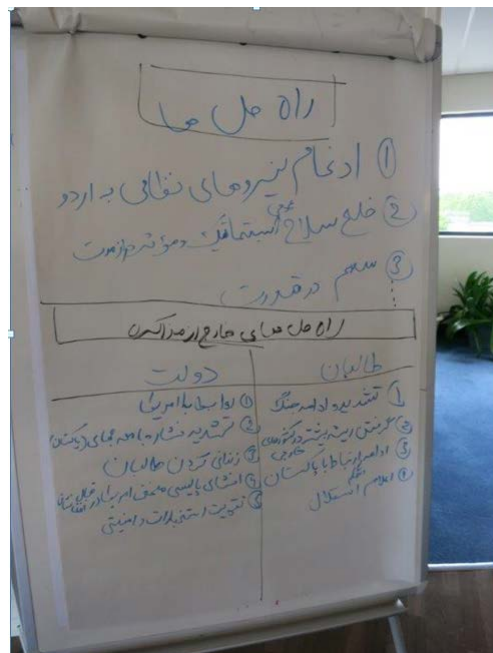 راه حل ها
① ادغام نیروهای نظامی به اردو
② خلع سلاح عمومی سیستماتیک و مؤثر دراز مدت
③ سهم در قدرت
راه حل های خارج از مذاکره
طالبان
① تشدید و ادامه جنگ
② یافتن ریشه بیشتر در کشورهای خارجی
③ ادامه ارتباط با پاکستان
④ اعلام استقلال
دولت
① روابط با امریکا
② تشدید فشار با همسایه های (پاکستان)
③ زندانی کردن طالبان
④ افشای پالیسی امریکا در قبال افغانستان
⑤ تقویت استخبارات و امنیتی